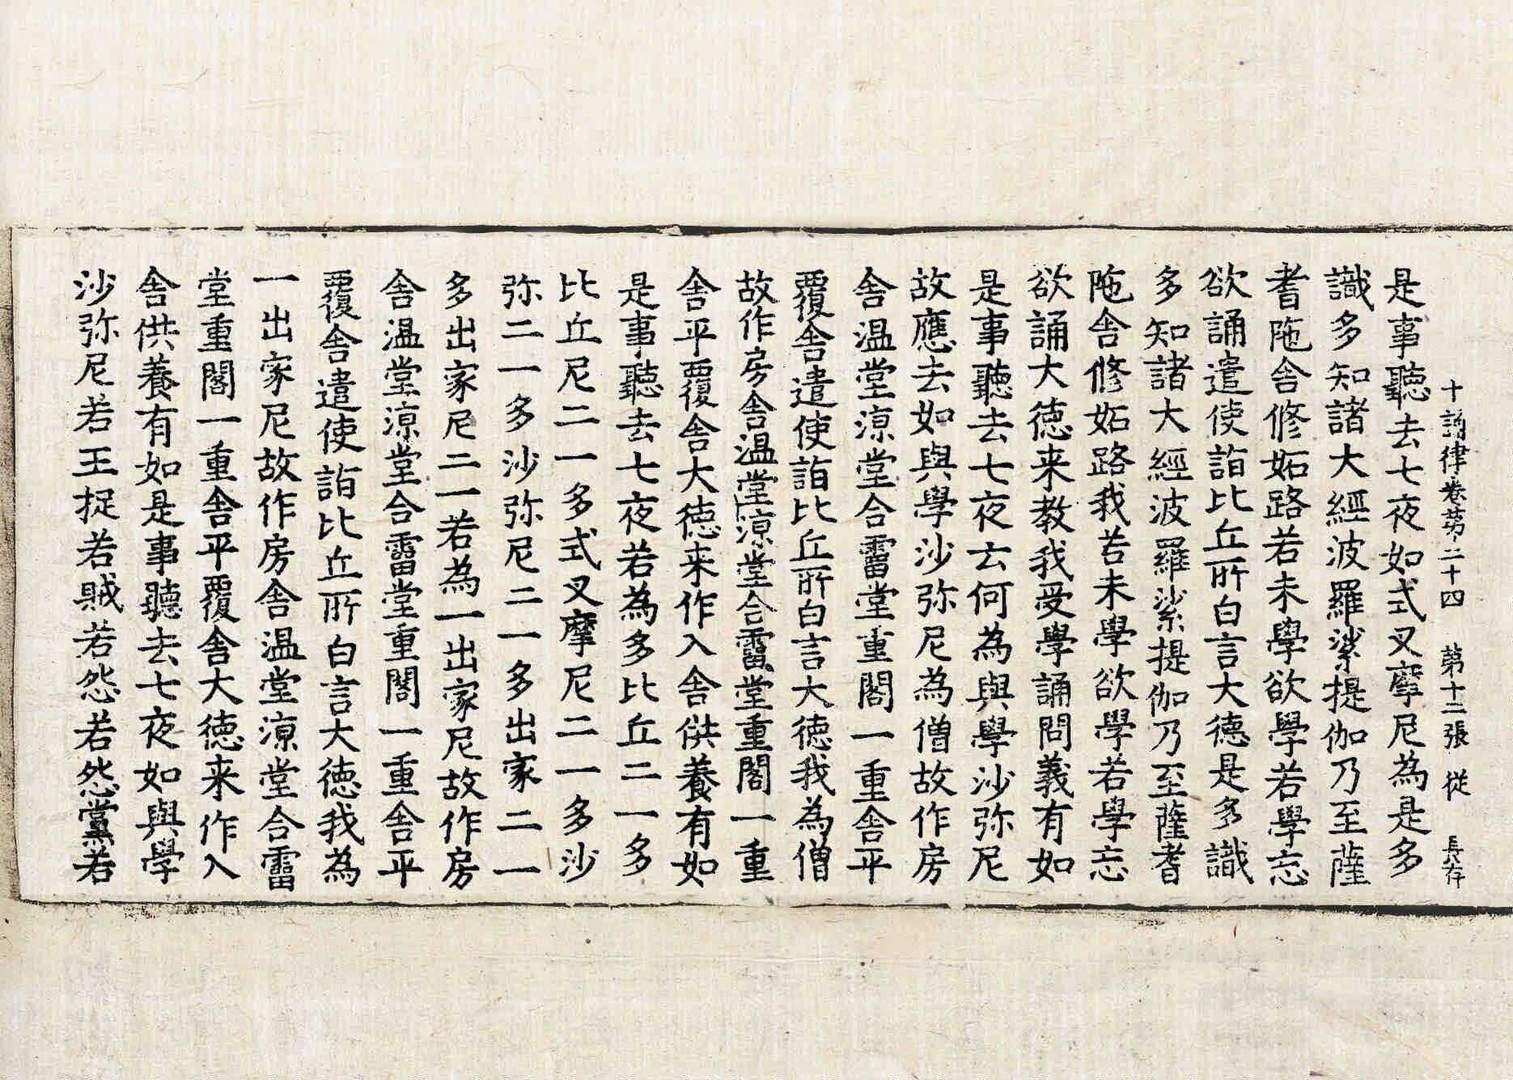 十誦律卷第二十四　第十二張　從　長存
是事聽去七夜如式叉摩尼為是多
識多知諸大經波羅紗提伽乃至薩
耆陁舍修妬路若未學欲學若學忘
欲誦遣使詣比丘所白言大德是多識
多知諸大經波羅紗提伽乃至薩耆
陁舍修妬路我若未學欲學若學忘
欲誦大德来教我受學誦問義有如
是事聽去七夜云何為與學沙弥尼
故應去如與學沙弥尼為僧故作房
舍温堂凉堂合霤堂重閣一重舍平
覆舍遣使詣比丘所白言大德我為僧
故作房舍温堂凉堂合霤堂重閣一重
舍平覆舍大德来作入舍供養有如
是事聽去七夜若為多比丘二一多
比丘尼二一多式叉摩尼二一多沙
弥二一多沙弥尼二一多出家二一
多出家尼二一若為一出家尼故作房
舍温堂凉堂合霤堂重閣一重舍平
覆舍遣使詣比丘所白言大德我為
一出家尼故作房舍温堂凉堂合霤
堂重閣一重舍平覆舍大德来作入
舍供養有如是事聽去七夜如與學
沙弥尼若王捉若賊若怨若怨黨若